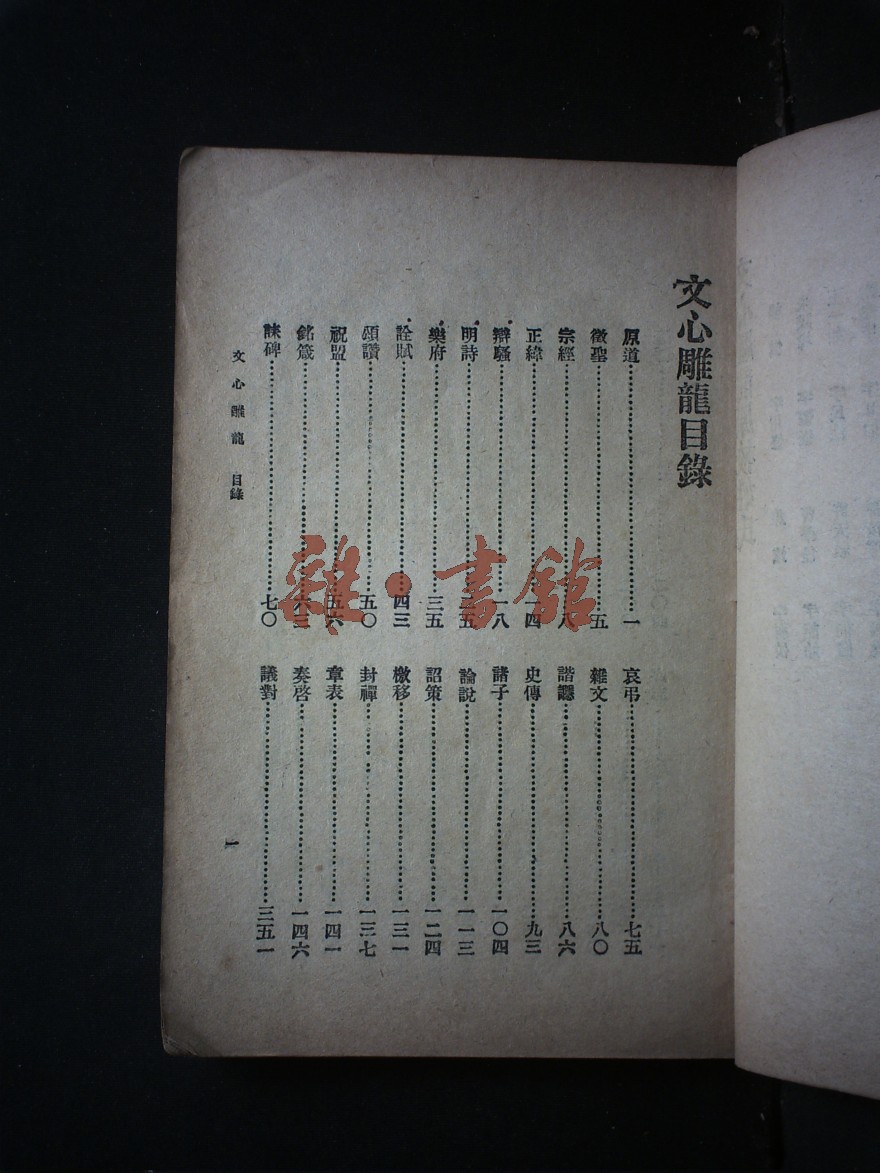 文心雕龍目錄
原道……一
徵聖……五
宗經……八
正緯……一四
辯騷……一八
明詩……二五
樂府……三五
詮賦……四三
頌讚……五〇
祝盟……五六
銘箴……六三
誄碑……七〇
哀弔……七五
雜文……八〇
諧讔……八六
史傳……九三
諸子……一〇四
論說……一一三
詔策……一二四
檄移……一三一
封禪……一三七
章表……一四一
奏啓……一四六
議對……三五一
文心雕龍 目錄
一
雜·書館